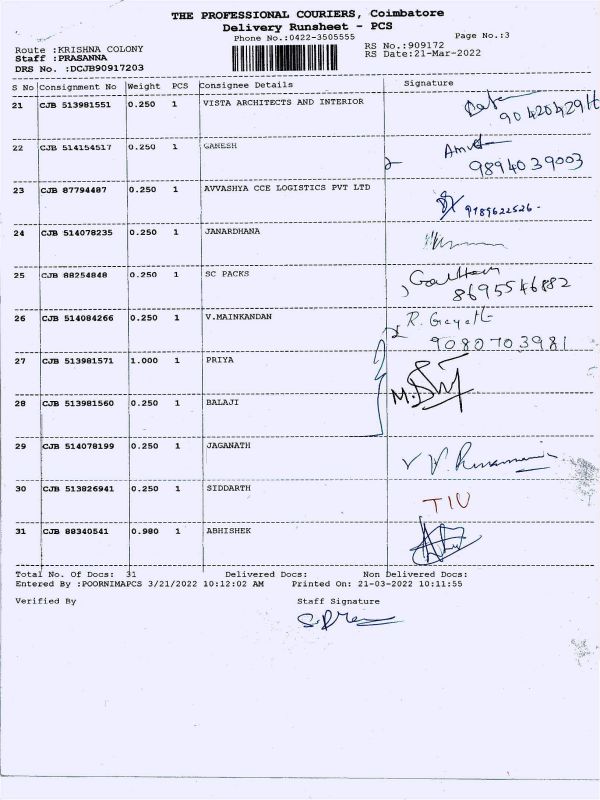 THE PROFESSIONAL COURIERS, Coimbatore
Delivery Runsheet - PCS
Phone No.:0422-3505555
Page No.:3
Route :KRISHNA COLONY
RS No.:909172
Staff :PRASANNA
RS Date:21-Mar-2022
DRS No. :DCJB90917203
S No Consignment No Weight PCS Consignee Details Signature
21 CJB 513981551 0.250 1 VISTA ARCHITECTS AND INTERIOR
22 CJB 514154517 0.250 1 GANESH
9894039003
23 CJB 87794487 0.250 1 AVVASHYA CCE LOGISTICS PVT LTD
9189622526-
24 CJB 514078235 0.250 1 JANARDHANA
25 CJB 88254848 0.250 1 SC PACKS
8695546882
26 CJB 514084266 0.250 1 V.MAINKANDAN
9080703981
27 CJB 513981571 1.000 1 PRIYA
28 CJB 513981560 0.250 1 BALAJI
29 CJB 514078199 0.250 1 JAGANATH
30 CJB 513826941 0.250 1 SIDDARTH
TIU
31 CJB 88340541 0.980 1 ABHISHEK
Total No. Of Docs: 31 Delivered Docs: Non Delivered Docs:
Entered By :POORNIMAPCS 3/21/2022 10:12:02 AM Printed On: 21-03-2022 10:11:55
Verified By Staff Signature